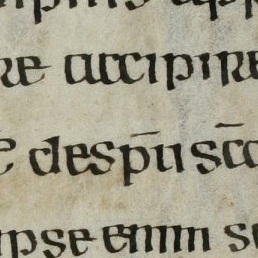 re accipire
e despū sc̄o
ipse enim s